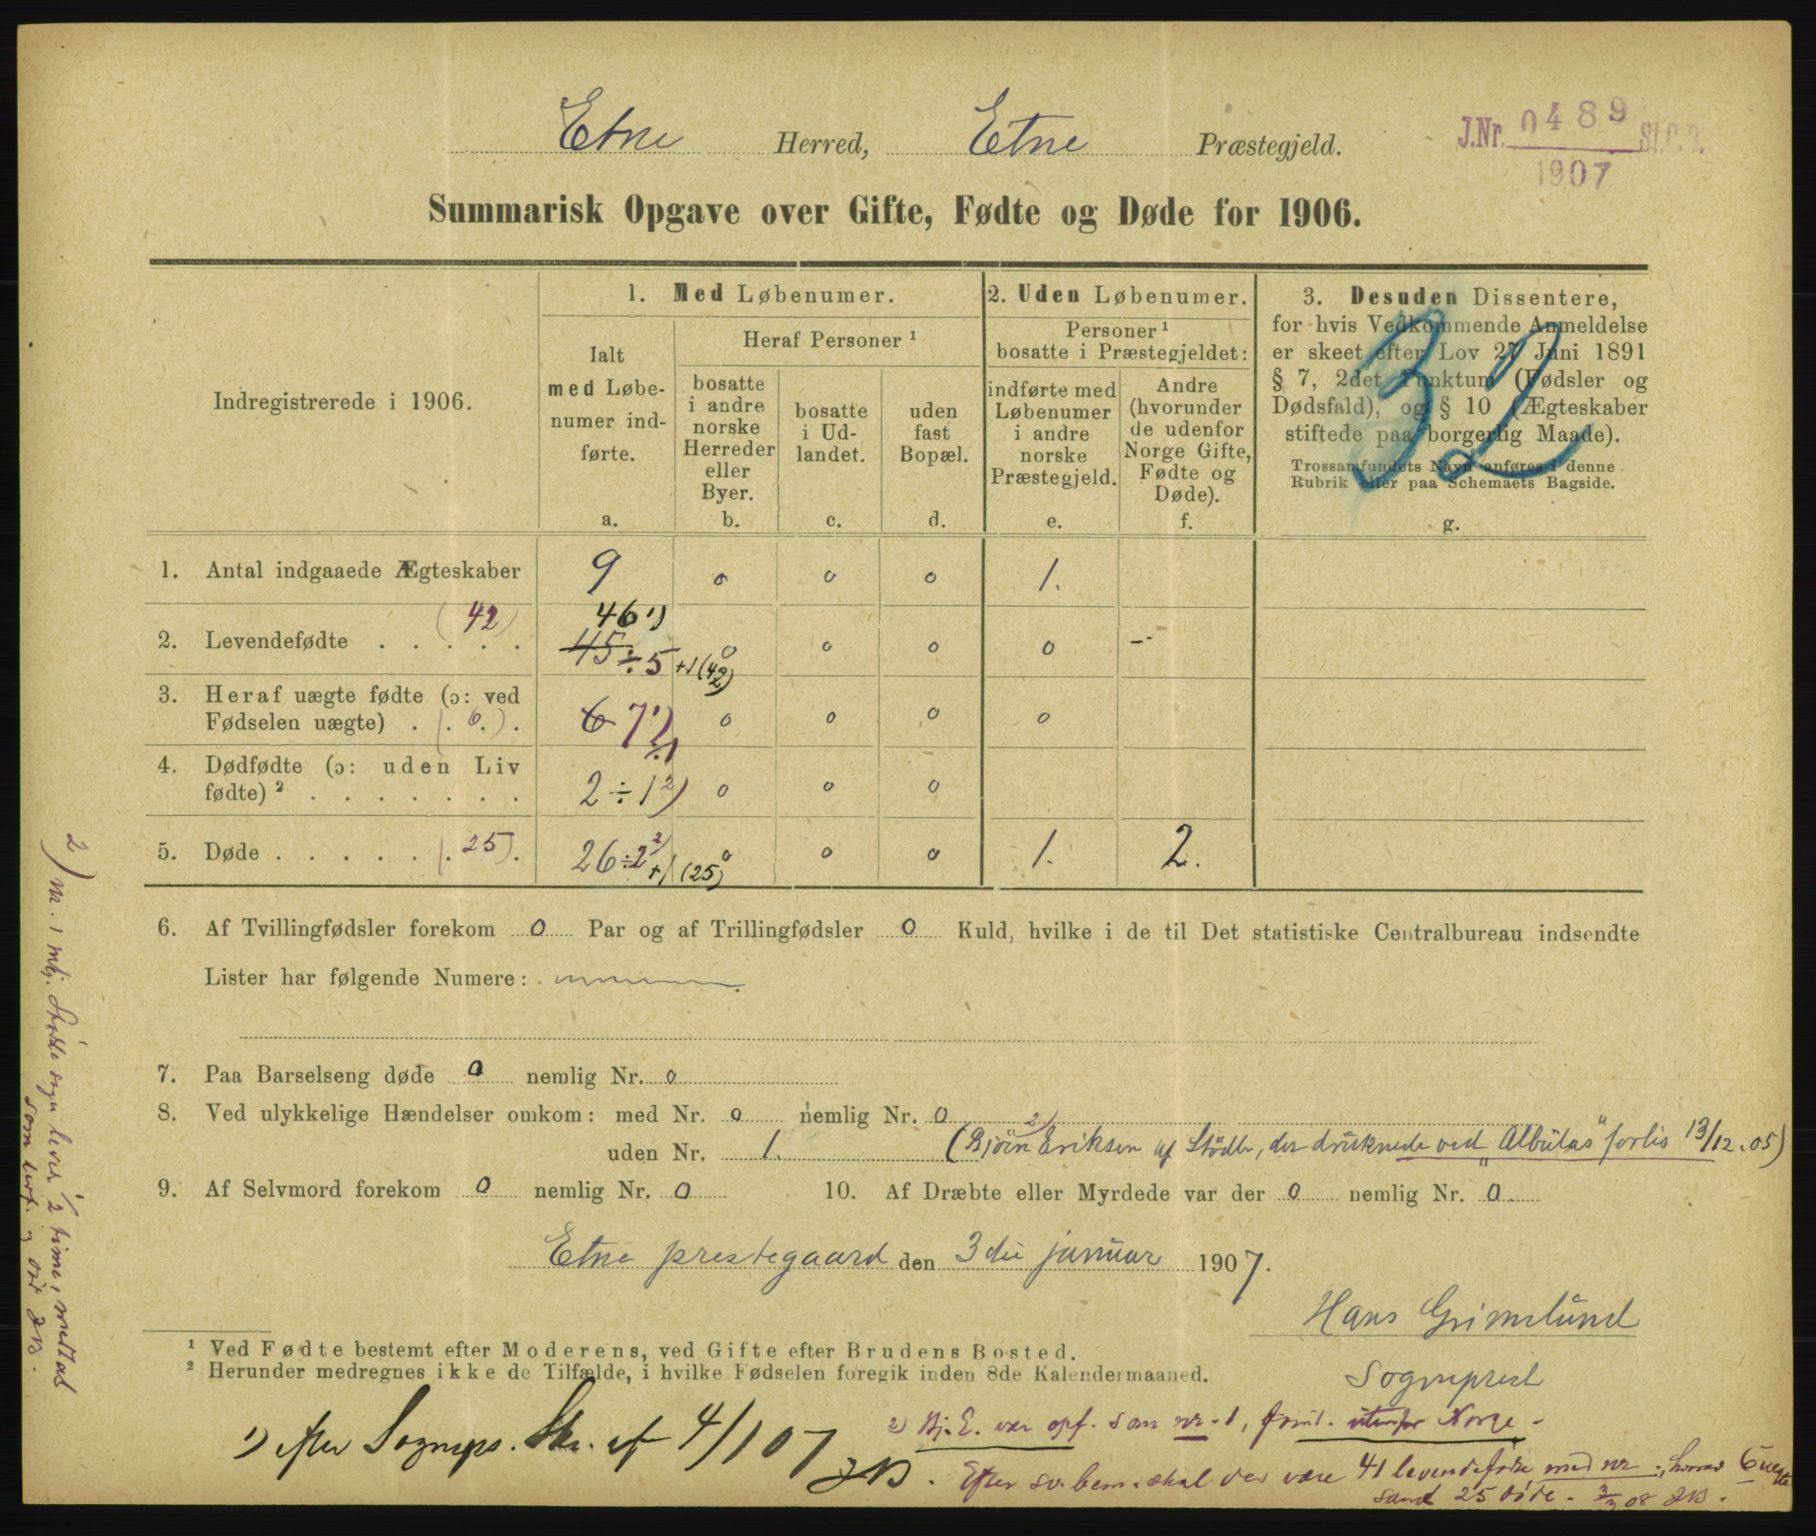 Etne Herred, Etne Præstegjeld.
J.Nr. 0489 St.C.B.
1907
Summarisk Opgave over Gifte, Fødte og Døde for 1906.
32
Indregistrerede i 1906.
1. Med Løbenumer.
Ialt
med Løbe-
numer ind-
førte.
a.
Heraf Personer ¹
bosatte
i andre
norske
Herreder
eller
Byer.
b.
bosatte
i Ud-
landet.
c.
uden
fast
Bopæl.
d.
2. Uden Løbenumer.
Personer ¹
bosatte i Præstegjeldet:
indførte med
Løbenumer
i andre
norske
Præstegjeld.
e.
Andre
(hvorunder
de udenfor
Norge Gifte,
Fødte og
Døde).
f.
3. Desuden Dissentere,
for hvis Vedkommende Anmeldelse
er skeet efter Lov 27 Juni 1891
§ 7, 2det Punktum (Fødsler og
Dødsfald), og § 10 (Ægteskaber
stiftede paa borgerlig Maade).
Trossamfundets Navn anføres i denne
Rubrik eller paa Schemaets Bagside.
g.
1. Antal indgaaede Ægteskaber 9 0 0 0 1.
(42) 46 ¹)
2. Levendefødte . . . . . 45 ÷ 5 +1 (42) 0 0 0 0 —
3. Heraf uægte fødte (ɔ: ved
Fødselen uægte) . (. 6.). 6 7 ¹) ÷1 0 0 0 0
4. Dødfødte (ɔ: uden Liv
fødte) ² . . . . . . . 2 ÷ 1 ²) 0 0 0
5. Døde . . . . . (. 25). 26 ÷ 2 ²) +1 (25) 0 0 0 1. 2.
6. Af Tvillingfødsler forekom 0 Par og af Trillingfødsler 0 Kuld, hvilke i de til Det statistiske Centralbureau indsendte
Lister har følgende Numere:
7. Paa Barselseng døde 0 nemlig Nr. 0
8. Ved ulykkelige Hændelser omkom: med Nr. 0 nemlig Nr. 0
uden Nr. 1. (Bjørn ²) Eriksen af Stödle, der druknede ved "Albulas" forlis 13/12.05)
9. Af Selvmord forekom 0 nemlig Nr. 0 10. Af Dræbte eller Myrdede var der 0 nemlig Nr. 0
Etne prestegaard den 3die januar 1907.
Hans Grimelund
Sogneprest
¹ Ved Fødte bestemt efter Moderens, ved Gifte efter Brudens Bosted.
² Herunder medregnes ikke de Tilfælde, i hvilke Fødselen foregik inden 8de Kalendermaaned.
¹) efter Sogneps. Skr. af 4/1 07
JB.
2) Bj. E. var opf. som nr. 1, omk. utenfor Norge -
Efter sv. bem. skal der være 41 levendefødte med nr., hvorav 6 uegte
samt 25 døde. 3/3 08 JB.
2) Nr. 1 mkj. Stødle sogn levet ½ time, medtas
som levf. og død JB.